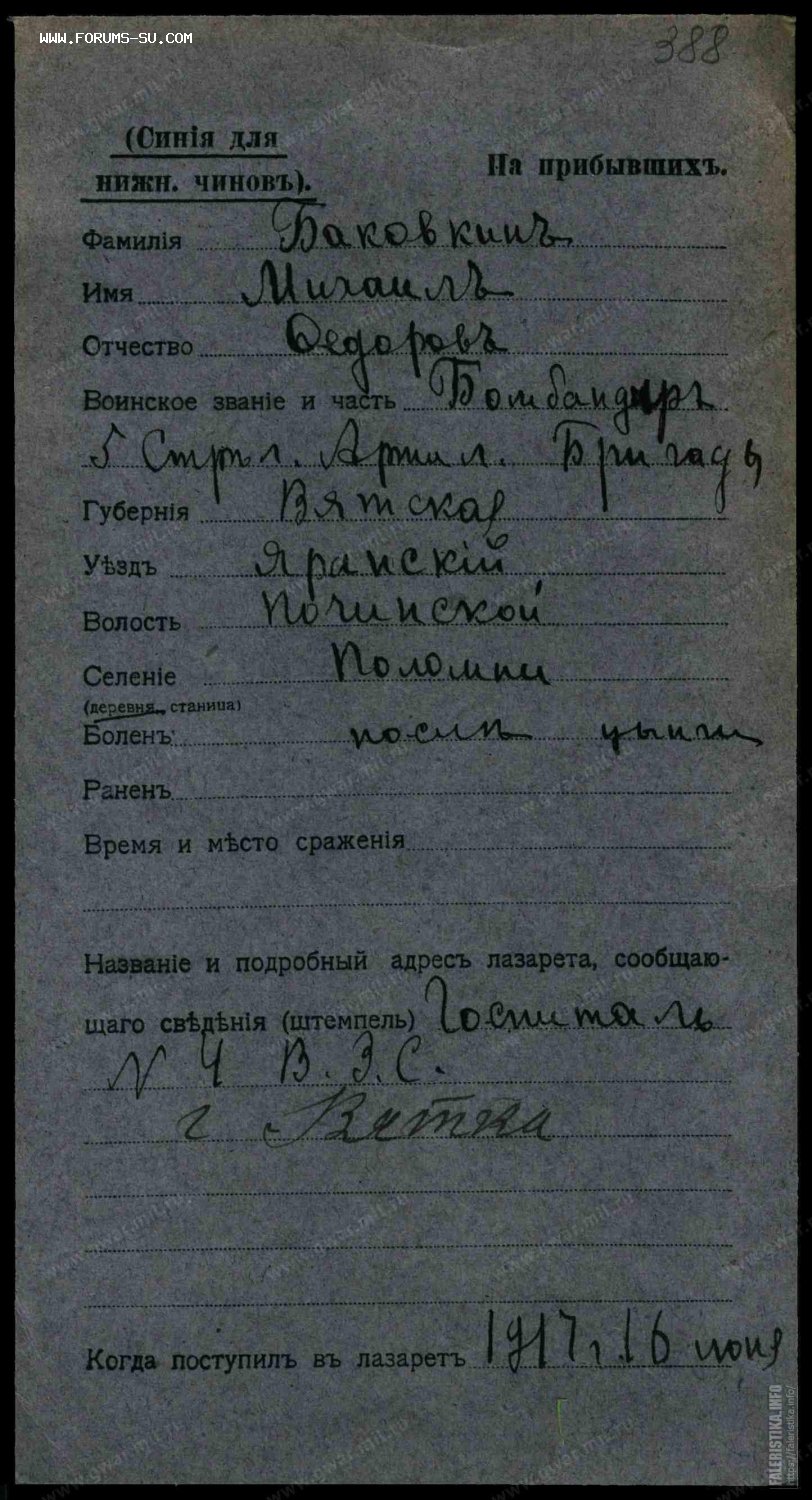 WWW.FORUMS-SU.COM
388
(Синія для
нижн. чиновъ).
На прибывшихъ.
Фамилія Баковкинъ
Имя Михаилъ
Отчество Ѳедоровъ
Воинское званіе и часть Бомбандиръ
5 Стрѣл. Артил. Бригады
Губернія Вятская
Уѣздъ Яранскій
Волость Починской
Селеніе Поломки
(деревня, станица)
Боленъ послѣ цынги
Раненъ
Время и мѣсто сраженія
Названіе и подробный адресъ лазарета, сообщаю-
щаго свѣдѣнія (штемпель) Госпиталь
N 4 В.З.С.
г Вятка
Когда поступилъ въ лазаретъ 1917 г 16 июня
FALERISTIKA.INFO
https://faleristika.info/